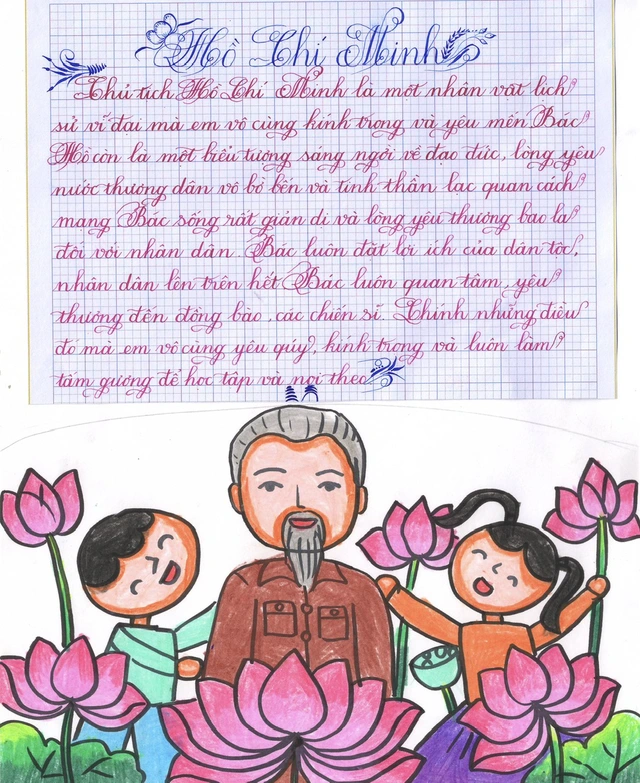 Hồ Chí Minh
Chủ tịch Hồ Chí Minh là một nhân vật lịch
sử vĩ đại mà em vô cùng kính trọng và yêu mến Bác
Hồ còn là một biểu tượng sáng ngời về đạo đức, lòng yêu
nước thương dân vô bờ bến và tinh thần lạc quan cách
mạng Bác sống rất giản dị và lòng yêu thương bao la
đối với nhân dân. Bác luôn đặt lợi ích của dân tộc,
nhân dân lên trên hết Bác luôn quan tâm, yêu
thương đến đồng bào, các chiến sĩ. Chính những điều
đó mà em vô cùng yêu quý, kính trọng và luôn làm
tấm gương để học tập và noi theo